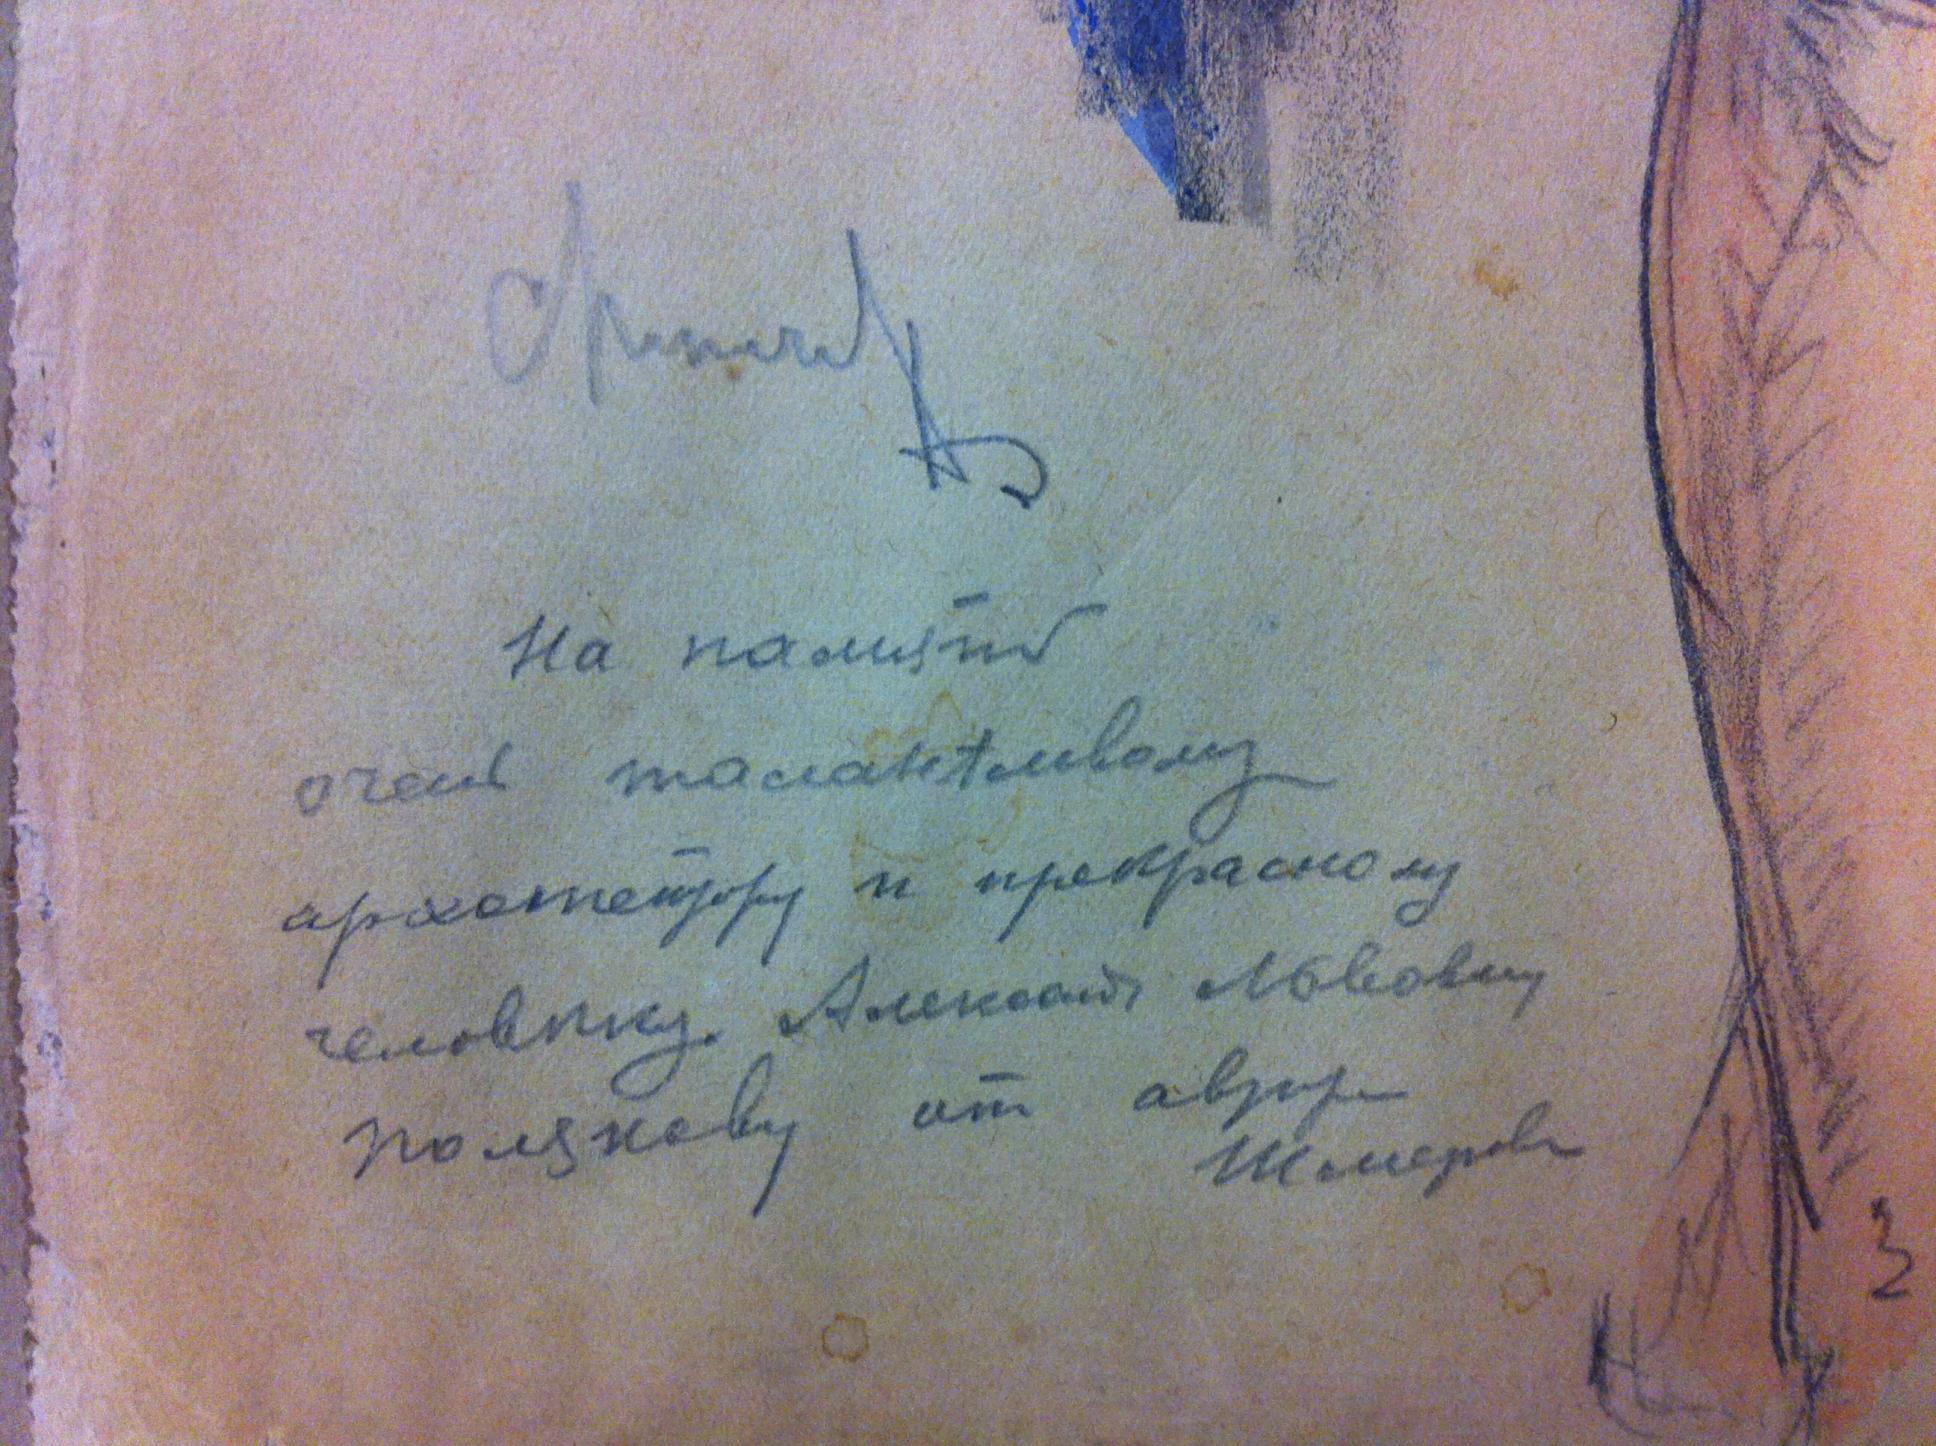 На память
очень талантливому
архетектору и прекрасному
человеку. Александ Львовичу
Полякову от
3